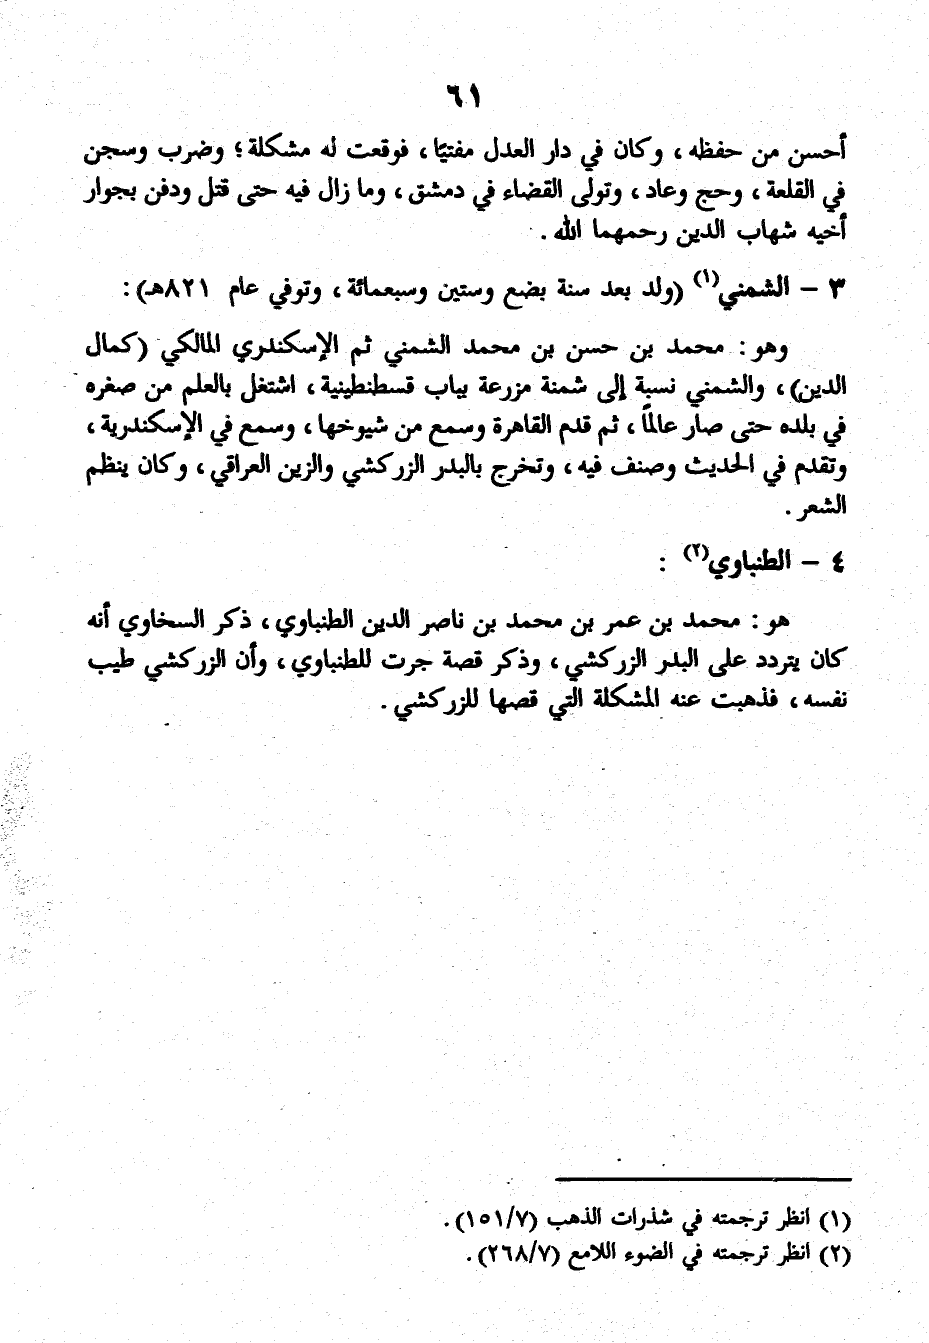 ٦١
أحسن من حفظه ، وكان في دار العدل مفتيًا ، فوقعت له مشكلة ؛ وضرب وسجن
في القلعة ، وحج وعاد ، وتولى القضاء في دمشق ، وما زال فيه حتى قتل ودفن بجوار
أخيه شهاب الدين رحمهما الله .
٣ – الشمني(١) (ولد بعد سنة بضع وستين وسبعمائة ، وتوفي عام ٨٢١هـ) :
وهو : محمد بن حسن بن محمد الشمني ثم الإسكندري المالكي (كمال
الدين) ، والشمني نسبة إلى شمنة مزرعة بباب قسطنطينية ، اشتغل بالعلم من صغره
في بلده حتى صار عالمًا ، ثم قدم القاهرة وسمع من شيوخها ، وسمع في الإسكندرية ،
وتقدم في الحديث وصنف فيه ، وتخرج بالبدر الزركشي والزين العراقي ، وكان ينظم
الشعر .
٤ – الطنباوي(٢) :
هو : محمد بن عمر بن محمد بن ناصر الدين الطنباوي ، ذكر السخاوي أنه
كان يتردد على البدر الزركشي ، وذكر قصة جرت للطنباوي ، وأن الزركشي طيب
نفسه ، فذهبت عنه المشكلة التي قصها للزركشي .
(١) انظر ترجمته في شذرات الذهب (١٥١/٧) .
(٢) انظر ترجمته في الضوء اللامع (٢٦٨/٧) .